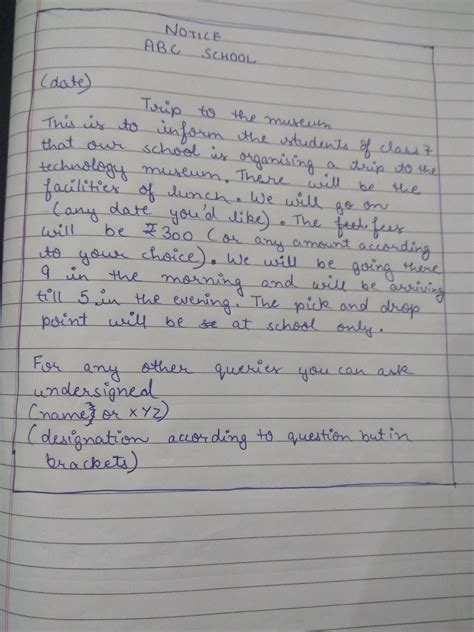 NOTICE
ABC SCHOOL
(date)
Trip to the museum
This is to inform the students of class 7
that our school is organising a trip to the
technology museum. There will be the
facilities of lunch. We will go on
(any date you'd like). The feet fees
will be ₹300 (or any amount according
to your choice). We will be going there
9 in the morning and will be arriving
till 5 in the evening. The pick and drop
point will be at school only.
For any other queries you can ask
undersigned
(name or XYZ)
(designation according to question but in
brackets)